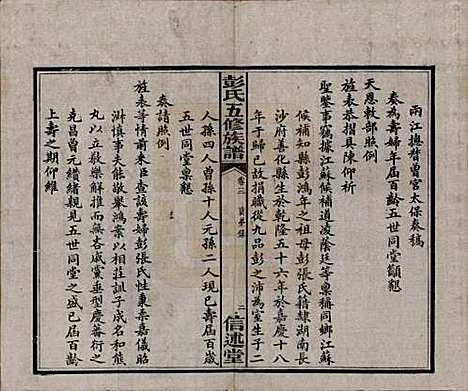 兩江總督曾宮太保奏稿
奏為壽婦年屆百齡五世同堂籲懇
天恩敕部照例
旌表恭摺具陳仰祈
聖鑒事竊據江蘇候補道凌蔭廷等稟稱同鄉江蘇
候補知縣彭鴻年之祖母彭張氏籍隸湖南長
沙府善化縣生於乾隆五十六年於嘉慶十八
年于歸已故捐職從九品彭之沛為室生子二
彭氏五修族譜
卷二
二
信述堂
人孫四人曾孫十人元孫二人現已年屆百歲
五世同堂稟懇
奏請照例
旌表等情前來臣查該壽婦彭張氏性秉柔嘉儀昭
淑慎事夫能敬舉鴻案以相莊訓子成名和熊
丸以立教樂善好施而無吝戚黨垂型慶蕃衍之
克昌曾元繞緒親見五世同堂之盛已屆百齡
上壽之期仰維